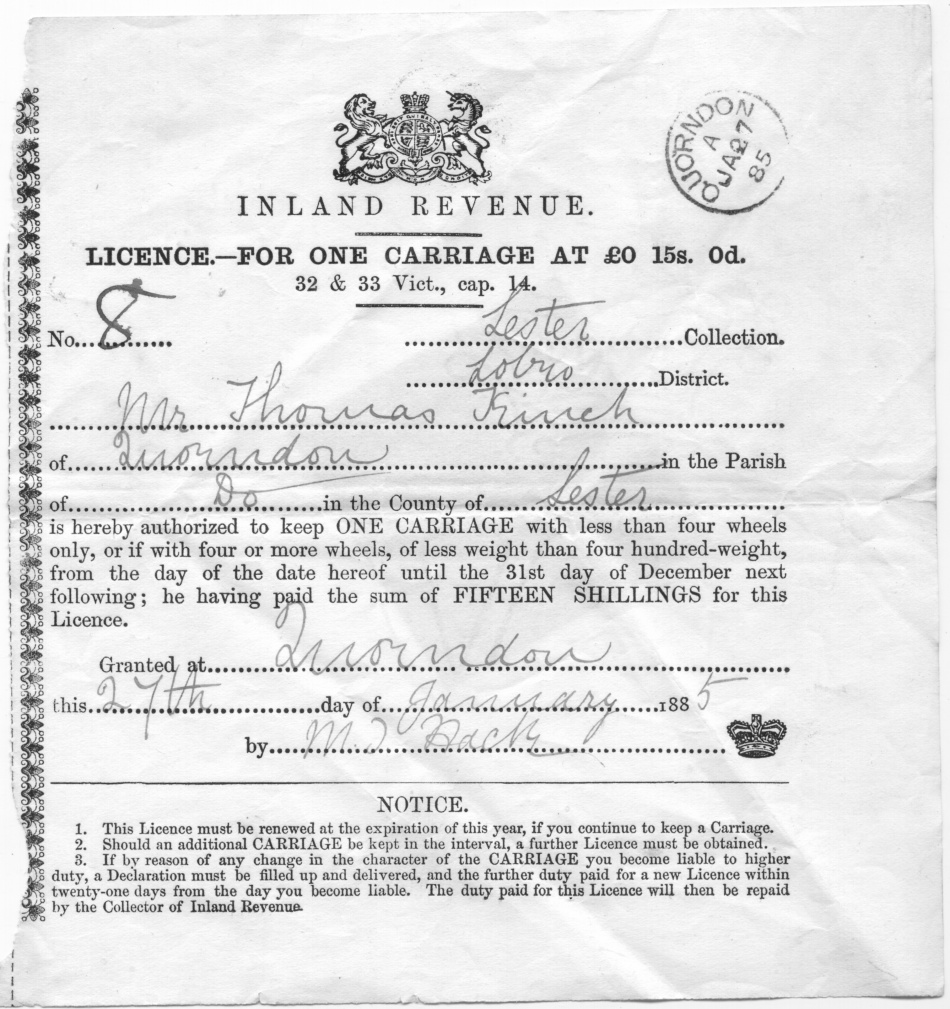 QUORNDON
A
JA 27
85
INLAND REVENUE.
LICENCE.—FOR ONE CARRIAGE AT £0 15s. 0d.
32 & 33 Vict., cap. 14.
No. 8 Lester Collection.
Lobro District.
Mr Thomas Kinch
of Quorndon in the Parish
of Do in the County of Lester
is hereby authorized to keep ONE CARRIAGE with less than four wheels
only, or if with four or more wheels, of less weight than four hundred-weight,
from the day of the date hereof until the 31st day of December next
following; he having paid the sum of FIFTEEN SHILLINGS for this
Licence.
Granted at Quorndon
this 27th day of January 1885
by M.J Hack
NOTICE.
1. This Licence must be renewed at the expiration of this year, if you continue to keep a Carriage.
2. Should an additional CARRIAGE be kept in the interval, a further Licence must be obtained.
3. If by reason of any change in the character of the CARRIAGE you become liable to higher
duty, a Declaration must be filled up and delivered, and the further duty paid for a new Licence within
twenty-one days from the day you become liable. The duty paid for this Licence will then be repaid
by the Collector of Inland Revenue.